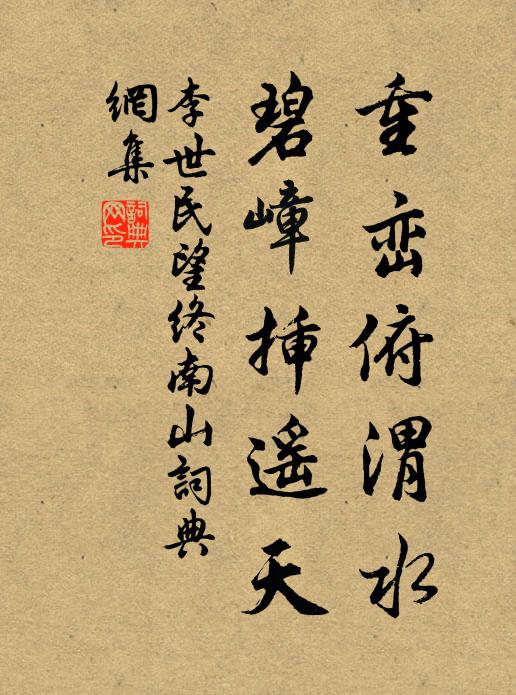 重峦俯渭水
碧嶂插遥天
李世民望终南山詞典
網集
詞典
网印